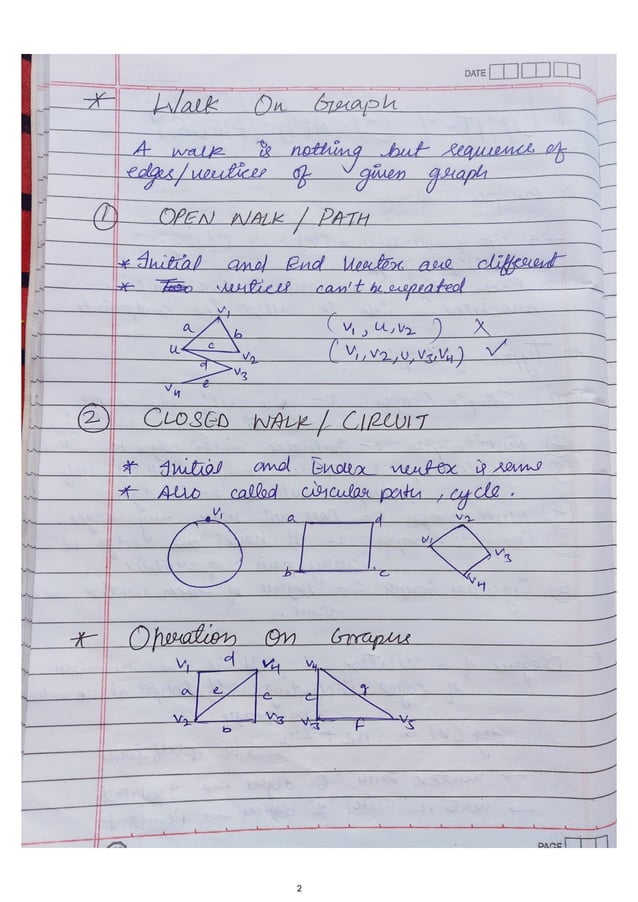 DATE
* Walk On Graph
A walk is nothing but sequence of
edges/vertices of given graph
① OPEN WALK / PATH
* Initial and End Vertex are different
* vertices can't be repeated
v1
a b
u c v2
d v3
v4 e
(v1, u, v2 ) X
(v1, v2, u, v3, v4) ✓
② CLOSED WALK / CIRCUIT
* Initial and Endex vertex is same
* Also called circular path, cycle.
v1
a d
b c
v2
v1 v3
v4
* Operation On Graphs
v1 d v4
a e c
v2 b v3
v4
c g
v3 f v5
PAGE
2